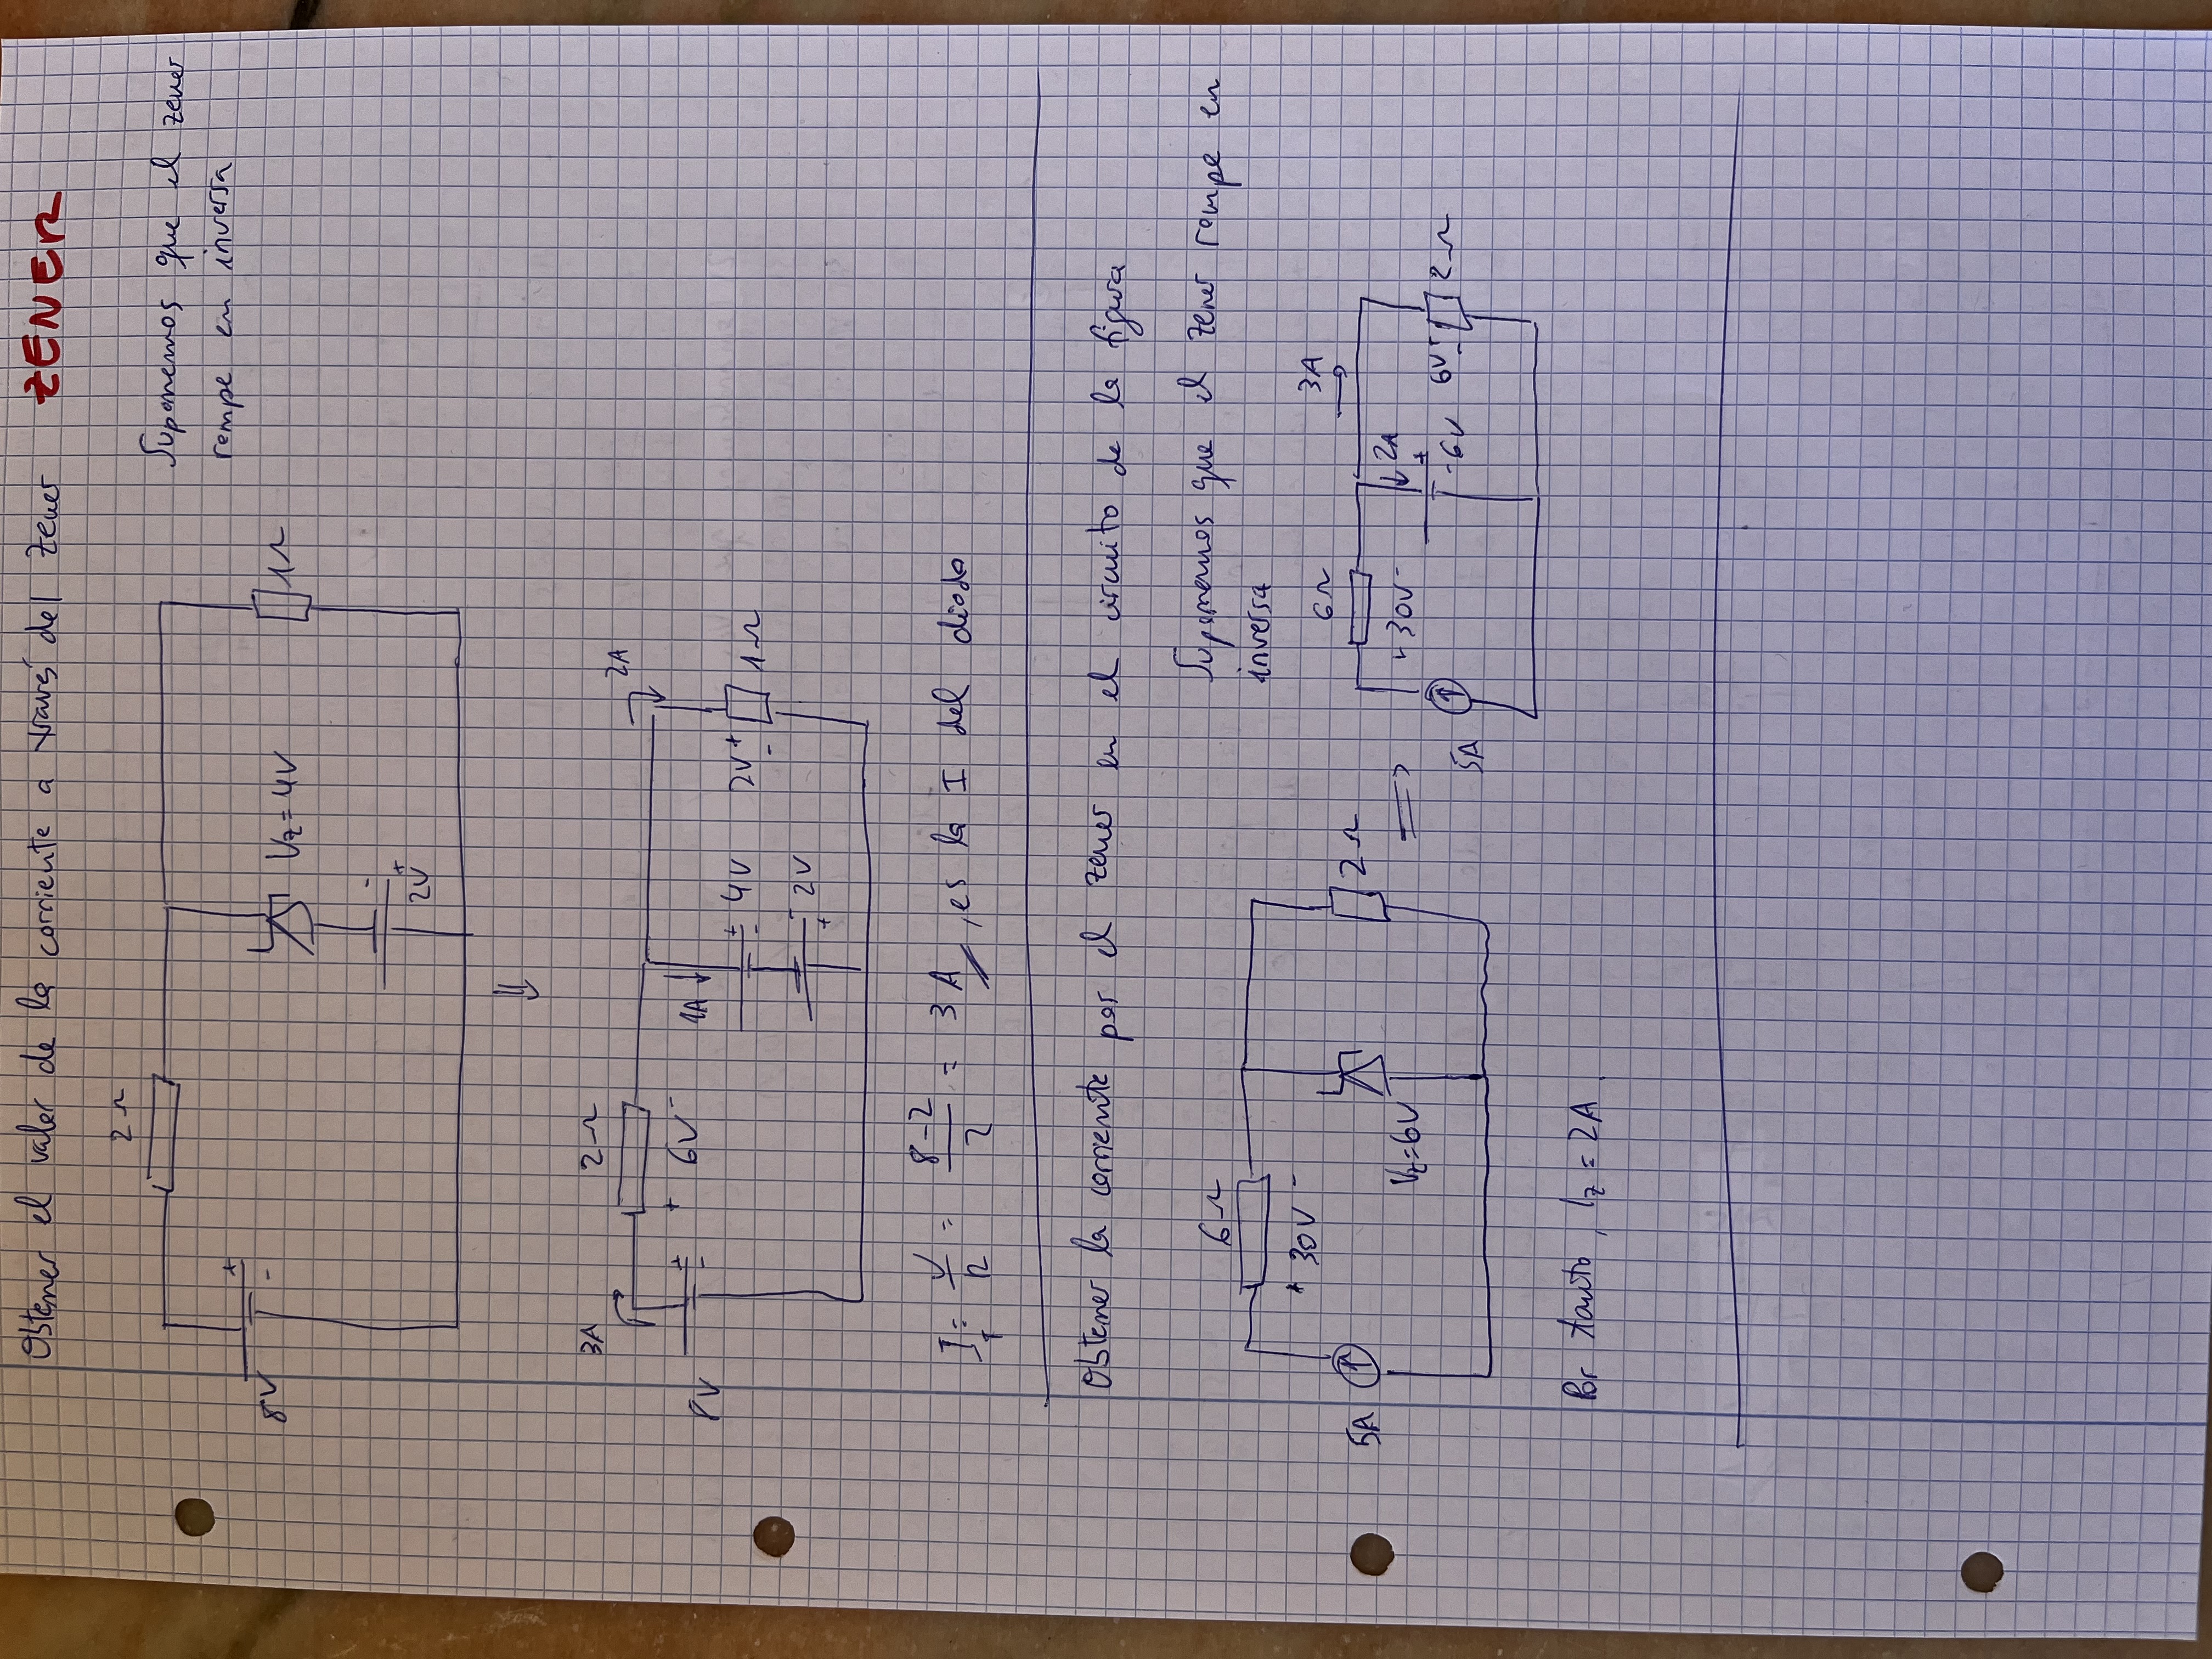 Obtener el valor de la corriente a través del zener ZENER
2Ω
Suponemos que el zener
rompe en inversa
+
-
8V
Vz = 4V
1Ω
-
+
2V
⇓
3A
2Ω
2A
+ 6V -
1A ↓
8V
+
-
+
-
4V
2V
+
-
1Ω
-
+
2V
I_T = V/R = (8-2)/2 = 3 A, es la I del diodo
Obtener la corriente por el zener en el circuito de la figura
Suponemos que el zener rompe en
inversa
6Ω
+ 30V -
5A
Vz=6V
2Ω
⇒
6Ω
3A
+ 30V -
2A
+
- 6V
6V
+
-
2Ω
5A
Por tanto, Iz = 2A.